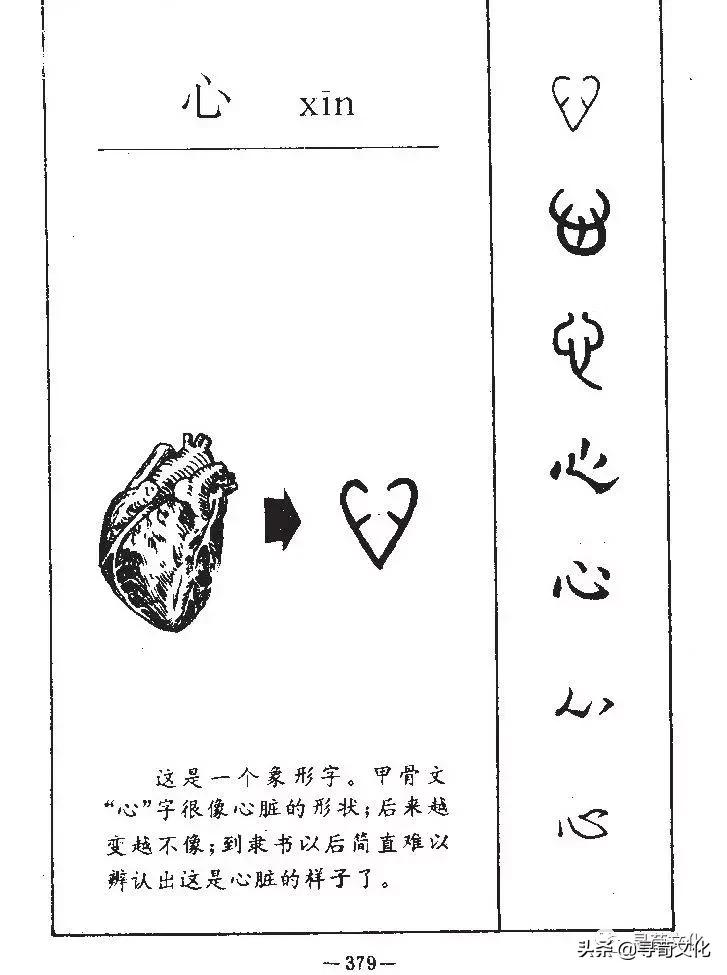 心 xīn
这是一个象形字。甲骨文
“心”字很像心脏的形状；后来越
变越不像；到隶书以后简直难以
辨认出这是心脏的样子了。
心
心
心
心
—379—
头条@寻奇文化